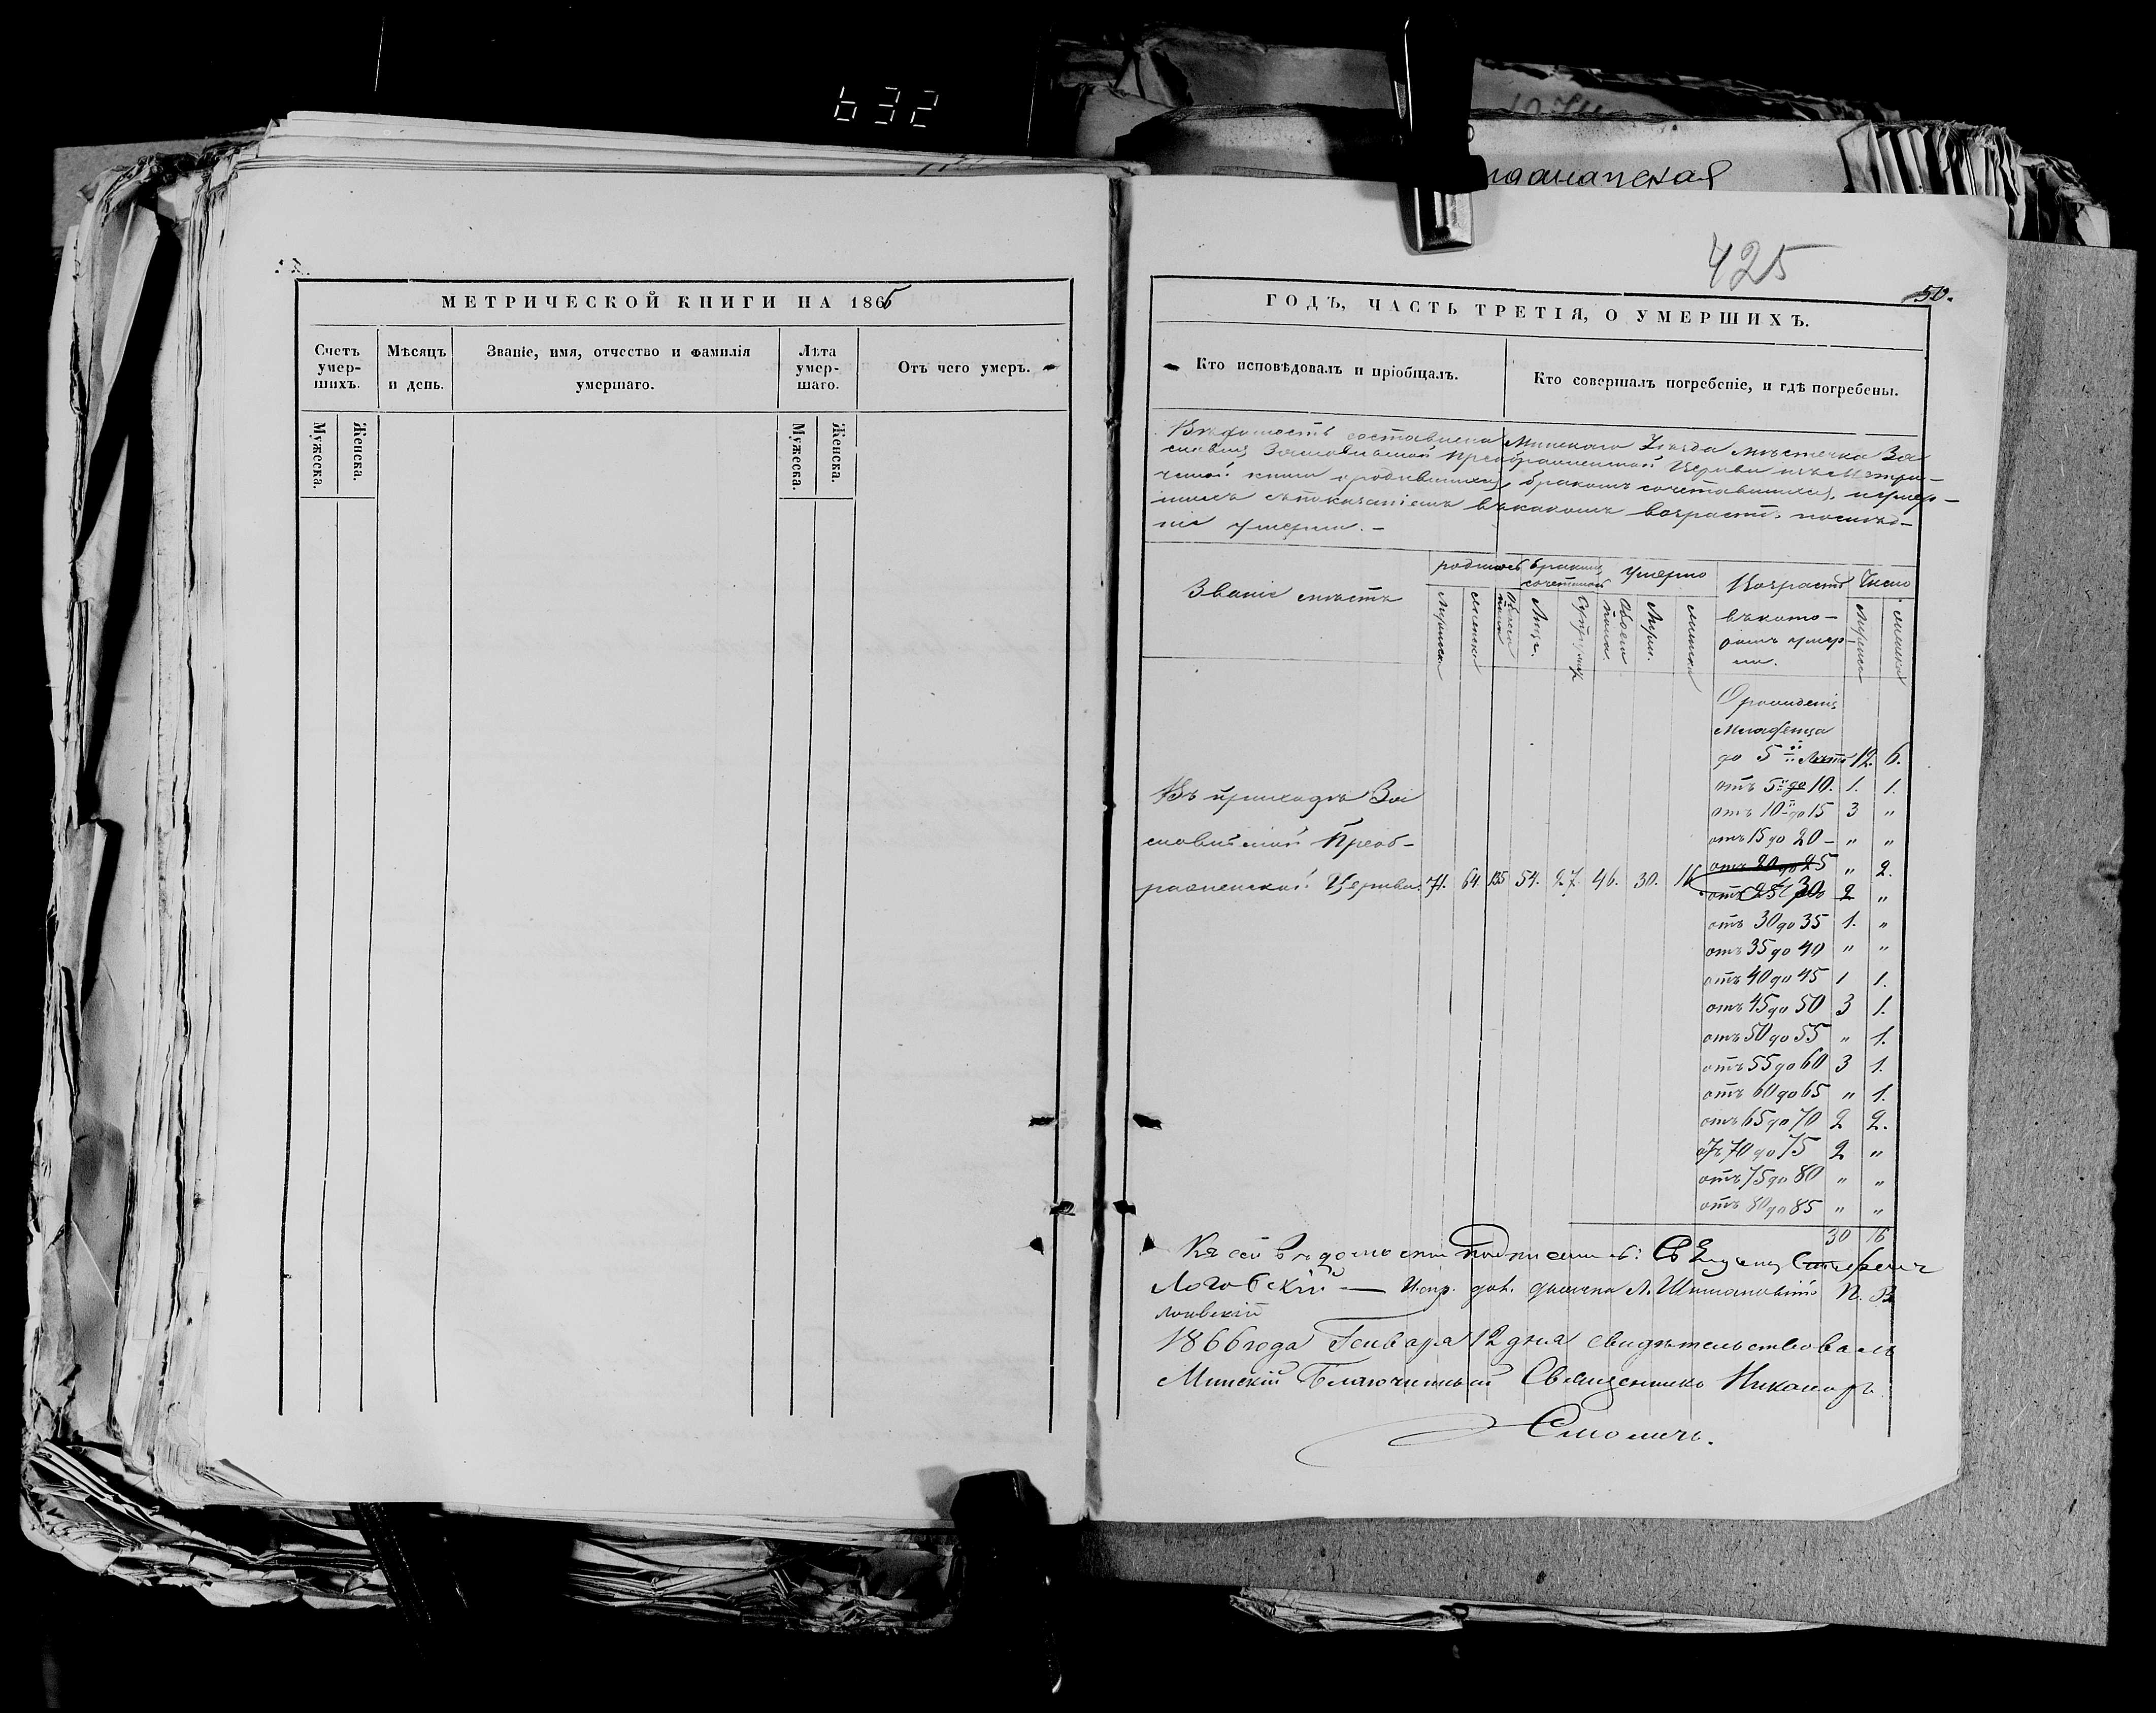 632
маслаческая
425
50.
МЕТРИЧЕСКОЙ КНИГИ НА 1865
Счетъ умер-шихъ.
Мужеска.
Женска.
Мѣсяцъ и день.
Званіе, имя, отчество и фамилія умершаго.
Лѣта умер-шаго.
Мужеска.
Женска.
Отъ чего умеръ.
ГОДЪ, ЧАСТЬ ТРЕТІЯ, О УМЕРШИХЪ.
Кто исповѣдовалъ и пріобщалъ.
Кто совершалъ погребеніе, и гдѣ погребены.
Вѣдомость составлена Минскаго Уѣзда мѣстечка За
славля Заславльской Преображенской Церкви изъ Метри-
ческой книги о родившихся, бракомъ сочетавшихся, и умер-
шихъ съ показаніемъ въ какомъ возрастѣ послѣд-
ніе умерли. -
Званіе мѣстъ
родилось
бракомъ сочеталось
умерло
Возрастъ
Число
Мужеска
Женска
Обоего пола
Лицъ.
Обоего пола.
Муж.
Женска
въ кото-
ромъ умер-
ли.
Мужска
женска
Отъ рожденія
младенца
до 5 лѣтъ 12. 6.
отъ 5 до 10. 1. 1.
отъ 10 до 15 3 "
отъ 15 до 20 - " "
отъ 20 до 25 " 2.
отъ 25 до 30 2 "
отъ 30 до 35 1. "
отъ 35 до 40 " "
отъ 40 до 45 1 1.
отъ 45 до 50 3 1.
отъ 50 до 55 " 1.
отъ 55 до 60 3 1.
отъ 60 до 65 " 1.
отъ 65 до 70 2 2.
отъ 70 до 75 2 "
отъ 75 до 80 " "
отъ 80 до 85 " "
30 16
Въ приходѣ За
славльской Преоб-
раженской Церкви. 71. 64. 135 54. 27. 46. 30. 16
Къ сей вѣдомости подписались: Священ Стефанъ
Логовскій — Испр. дол. дьячка Л. Шимановскій П.
1866 года Генваря 12 дня свидѣтельствовалъ
Минскій Благочинный Священникъ Никаноръ
Смоличъ.